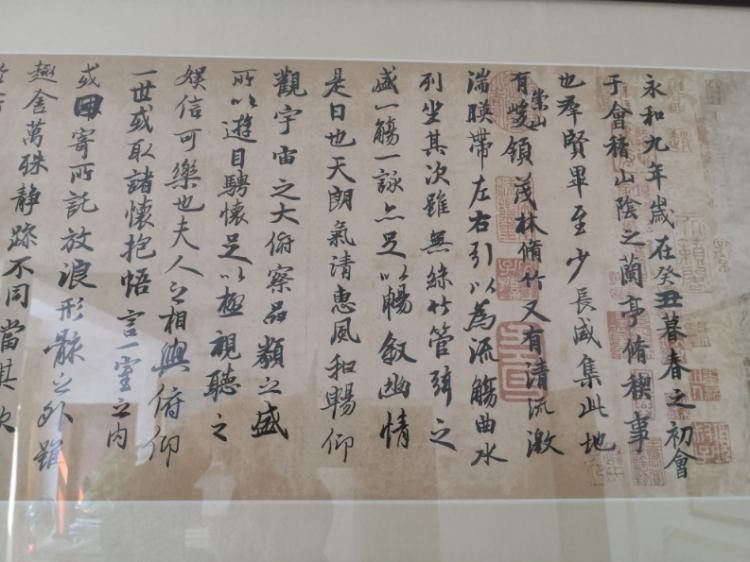 永和九年歲在癸丑暮春之初會
于會稽山陰之蘭亭脩稧事
也羣賢畢至少長咸集此地
有崇山峻領茂林脩竹又有清流激
湍暎帶左右引以為流觴曲水
列坐其次雖無絲竹管弦之
盛一觴一詠亦足以暢叙幽情
是日也天朗氣清惠風和暢仰
觀宇宙之大俯察品類之盛
所以遊目騁懷足以極視聽之
娛信可樂也夫人之相與俯仰
一世或取諸懷抱悟言一室之內
或因寄所託放浪形骸之外雖
趣舍萬殊靜躁不同當其欣